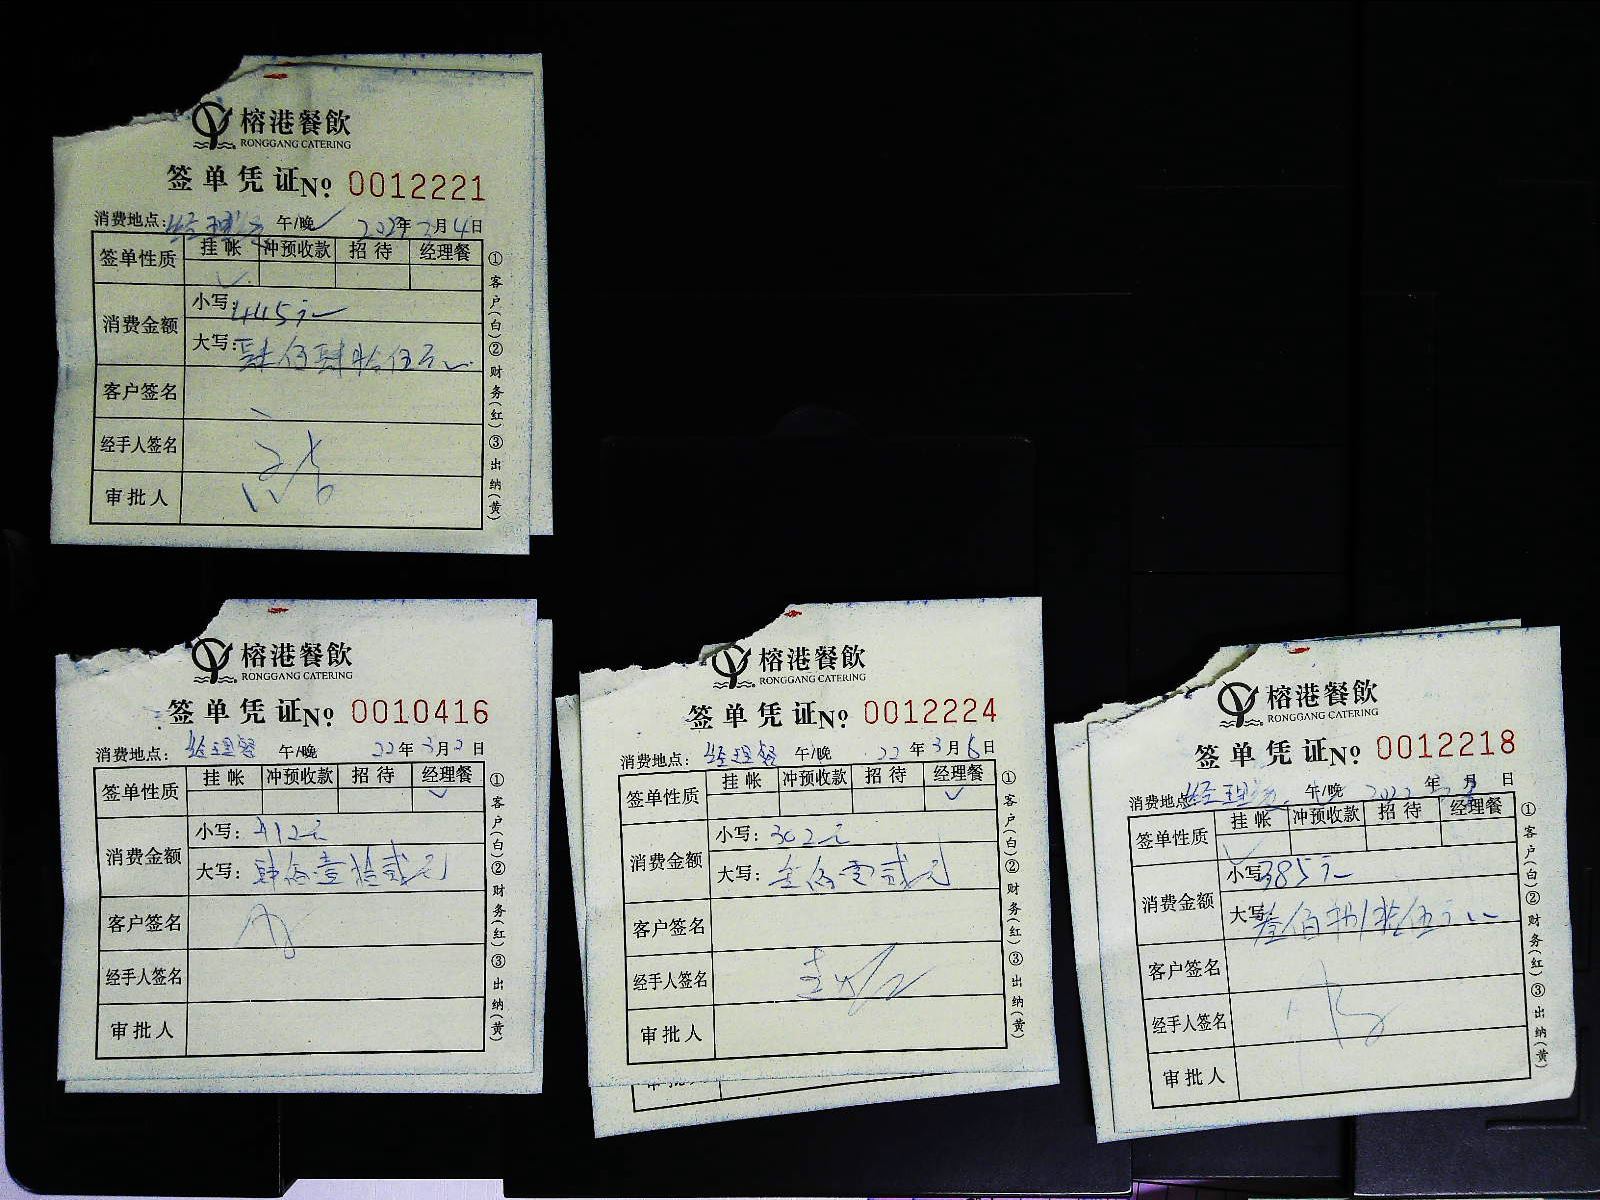 榕港餐飲
RONGGANG CATERING
签单凭证 No: 0012221
消费地点: 午/晚 年3月4日
签单性质 挂帐 冲预收款 招待 经理餐
✓
消费金额 小写: 445元
大写: 肆佰肆拾伍元
客户签名
经手人签名
审批人
①客户(白)②财务(红)③出纳(黄)
榕港餐飲
RONGGANG CATERING
签单凭证 No: 0010416
消费地点: 经理餐 午/晚 22年3月2日
签单性质 挂帐 冲预收款 招待 经理餐
✓
消费金额 小写: 412元
大写: 肆佰壹拾贰元
客户签名
经手人签名
审批人
①客户(白)②财务(红)③出纳(黄)
榕港餐飲
RONGGANG CATERING
签单凭证 No: 0012224
消费地点: 经理餐 午/晚 22年3月6日
签单性质 挂帐 冲预收款 招待 经理餐
✓
消费金额 小写: 302元
大写: 叁佰零贰元
客户签名
经手人签名
审批人
①客户(白)②财务(红)③出纳(黄)
榕港餐飲
RONGGANG CATERING
签单凭证 No: 0012218
消费地点 午/晚 2022年 月 日
签单性质 挂帐 冲预收款 招待 经理餐
✓
消费金额 小写 385元
大写 叁佰捌拾伍元
客户签名
经手人签名
审批人
①客户(白)②财务(红)③出纳(黄)